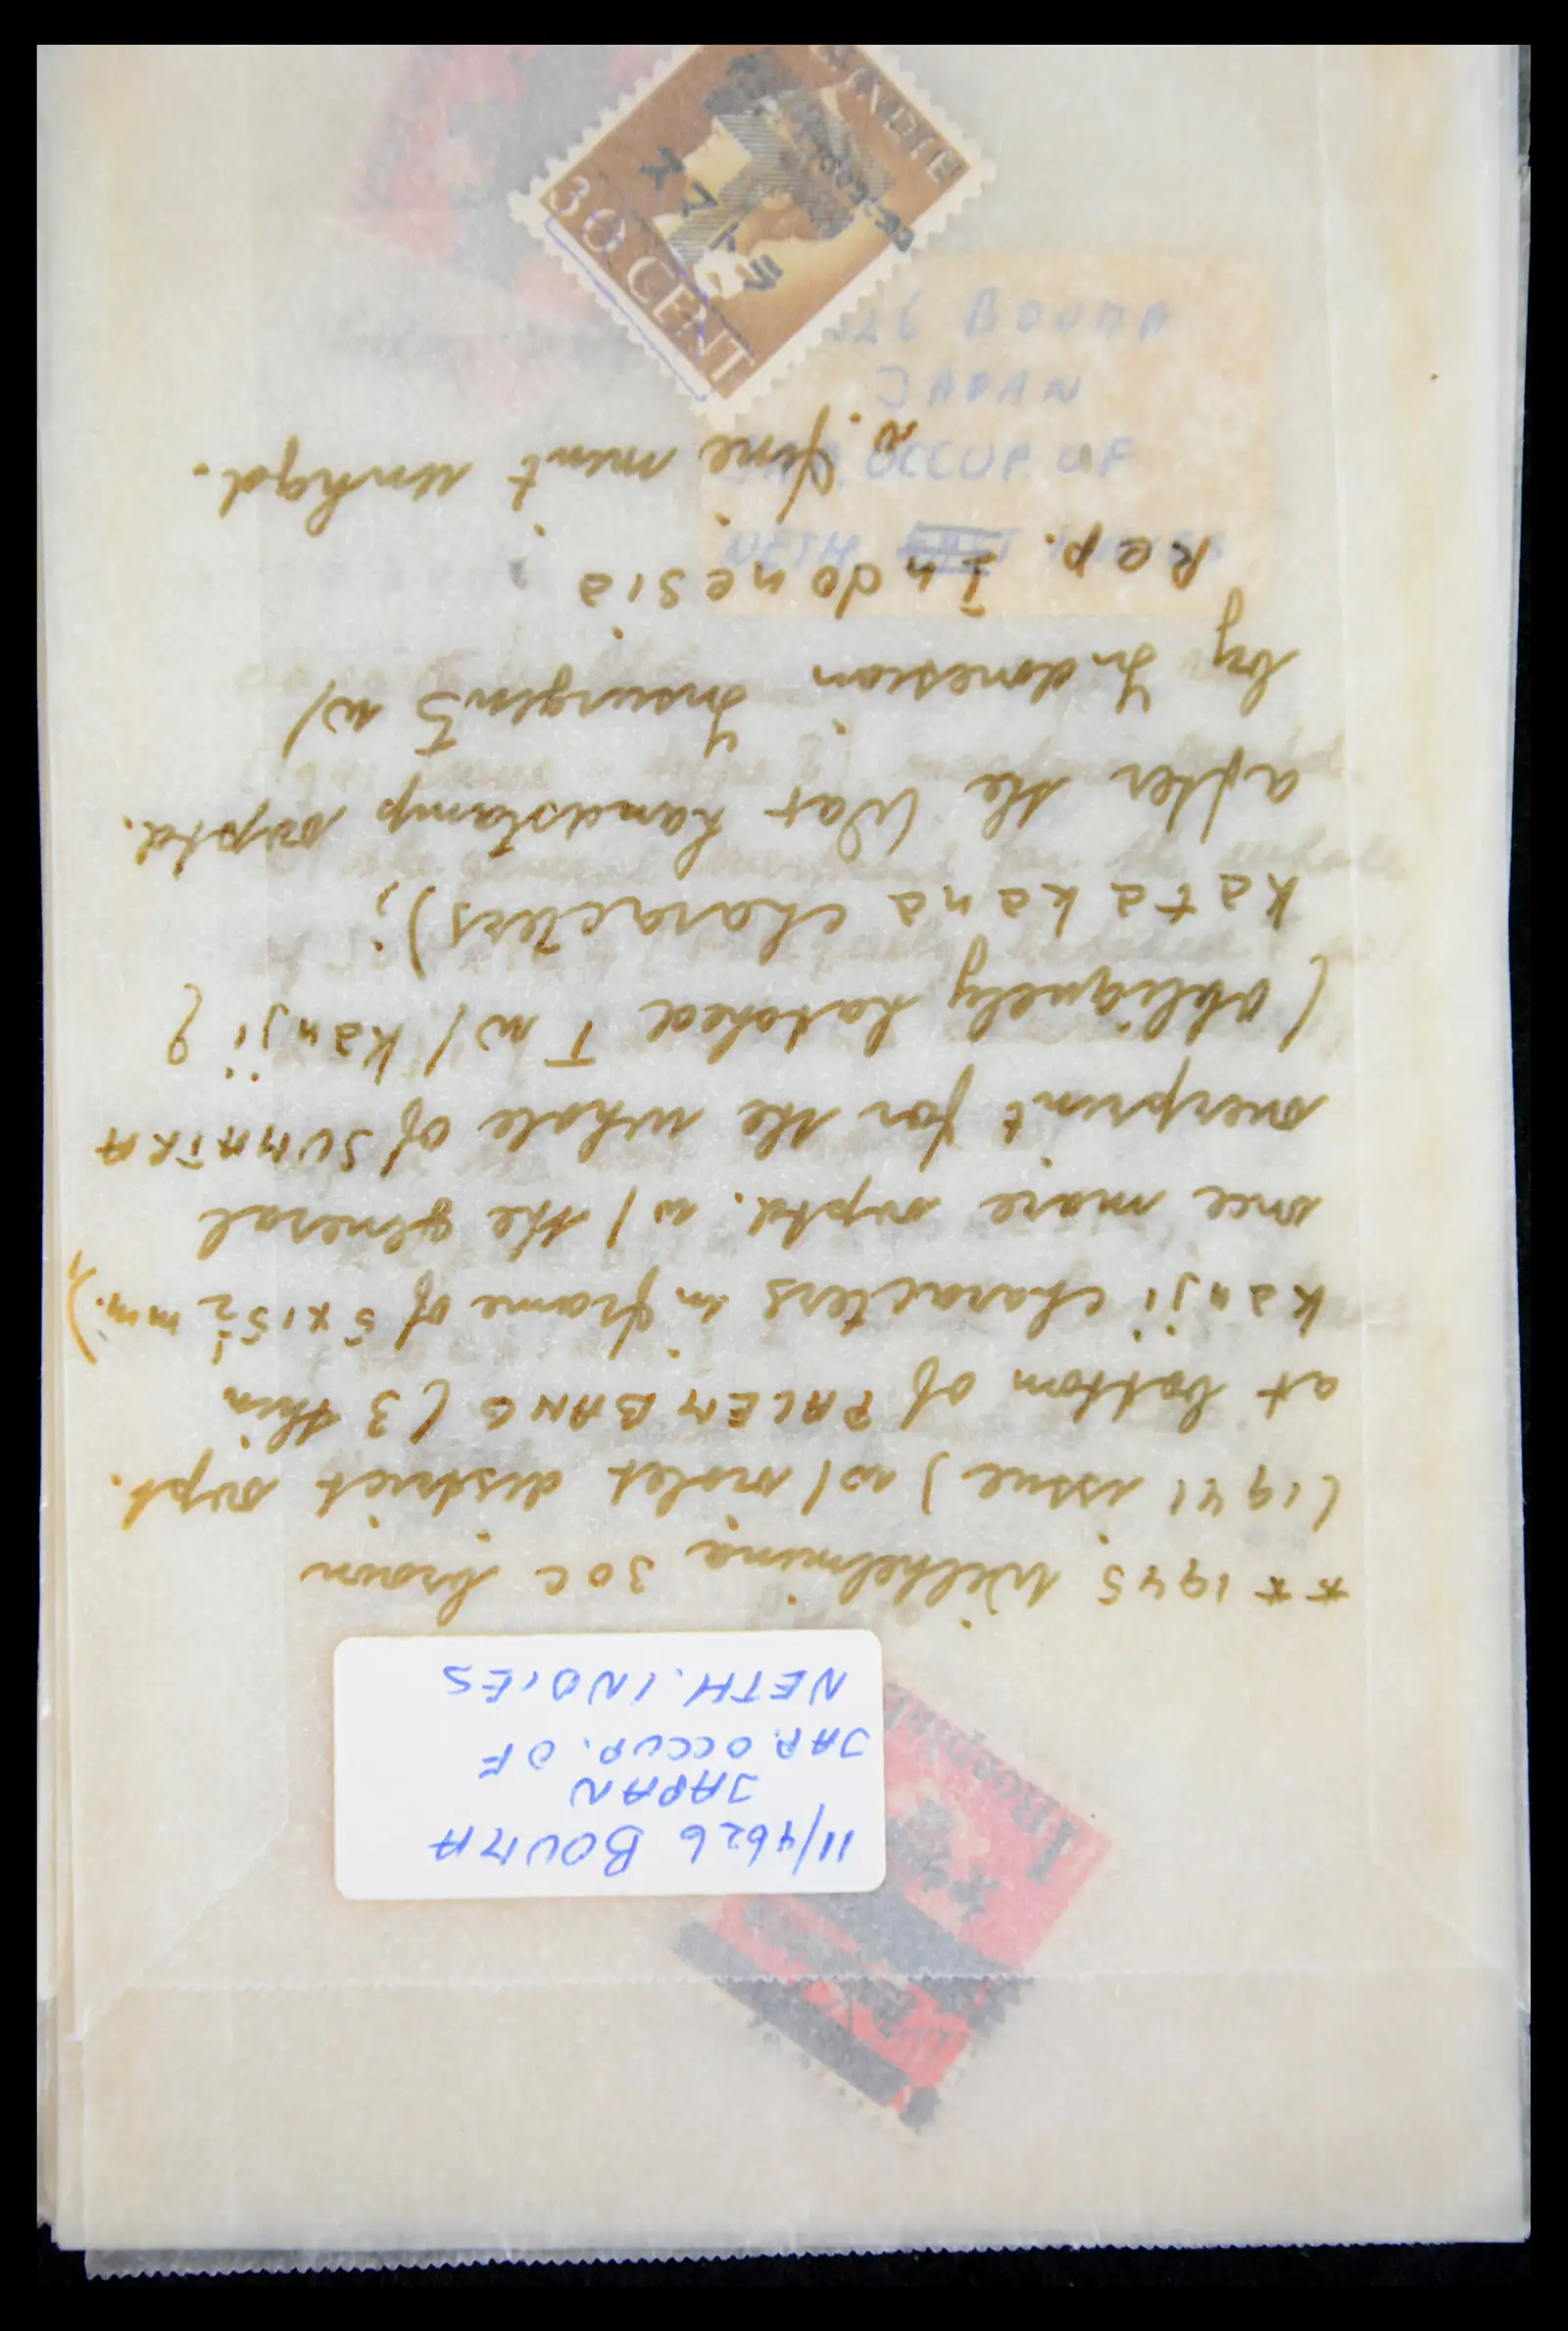 11/4626 BOUMA
JAPAN
JAP. OCCUP. OF
NETH. INDIES
** 1945 Wilhelmina 30c brown
(1941 issue) w/ violet district ovpt.
at bottom of PALEMBANG (3 thin
kanji characters in frame of 5 x 15½ mm.),
once more ovptd. w/ the general
overprint for the whole of SUMATRA
(obliquely hatched T w/ kanji &
katakana characters);
after the War handstamp ovptd.
by Indonesian Insurgents w/
Rep. Indonesia;
v. fine mint unhgd.
BOUMA
JAPAN
OCCUP. OF
NETH.
30 CENT
INDIE
1 Roepiah